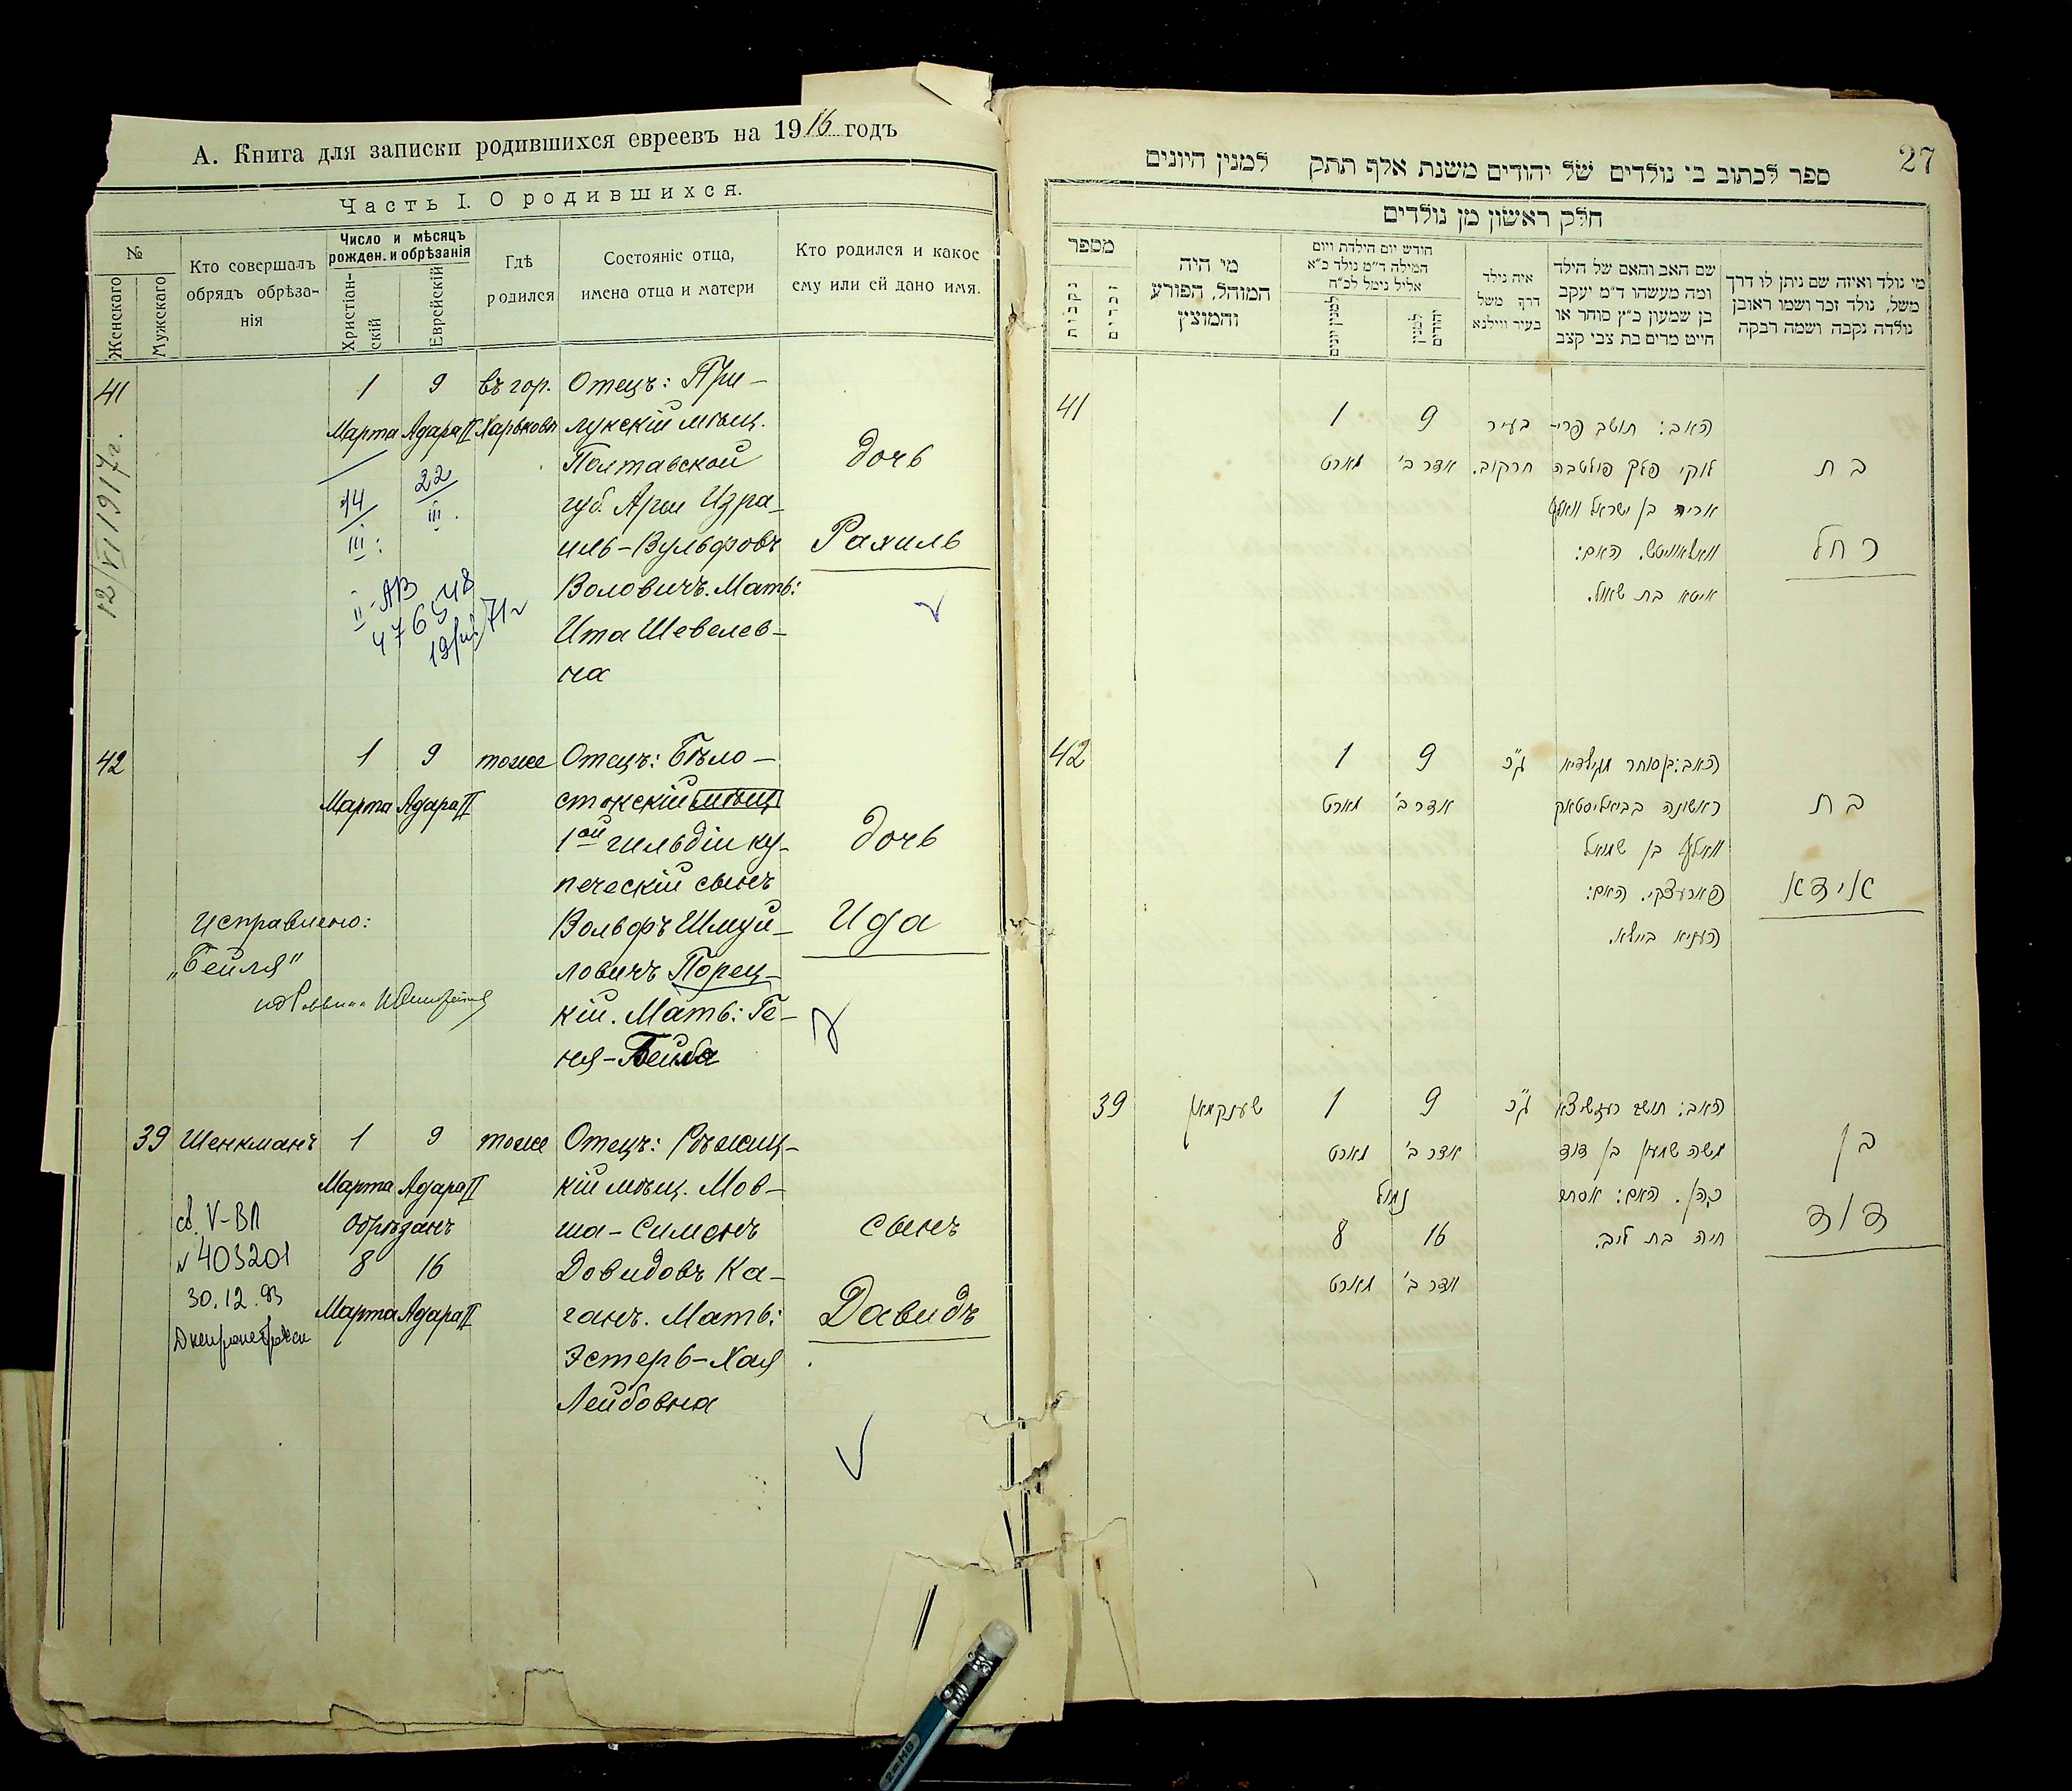 А. Книга для записки родившихся евреевъ на 1916 годъ
Часть I. О родившихся.
№
Женскаго
Мужскаго
Кто совершалъ
обрядъ обрѣза-
нія
Число и мѣсяцъ
рожден. и обрѣзанія
Христіан-
скій
Еврейскій
Гдѣ
родился
Состояніе отца,
имена отца и матери
Кто родился и какое
ему или ей дано имя.
41
1
Марта
9
Адара II
въ гор.
Харьковѣ
Отецъ: При-
лукскій мѣщ.
Полтавской
губ. Арье Изра-
иль-Вульфовъ
Воловичъ. Мать:
Ита Шевелев-
на
дочь
Рахиль
12/VI 1917 г.
14
III
22
III
II-АВ
476548
19/III 71 г
42
1
Марта
9
Адара II
тоже
Отецъ: Бѣло-
стокскій мѣщ
1ой гильдіи ку-
печескій сынъ
Вольфъ Шмуй-
ловичъ Порец-
кій. Мать: Ге-
ня-Бейля
дочь
Ида
Исправлено:
„Бейля"
39
Шенкманъ
1
Марта
9
Адара II
Обрѣзанъ
8
Марта
16
Адара II
тоже
Отецъ: Рѣжиц-
кій мѣщ. Мов-
ша-Симонъ
Довидовъ Ка-
ганъ. Мать:
Эстеръ-Хая
Лейбовна
сынъ
Давидъ
св. V-ВЛ
№ 403201
30.12.93
27
ספר לכתוב בי נולדים של יהודים משנת אלף תתק למנין היונים
חלק ראשון מן נולדים
מספר
נקבות
זכרים
מי היה
המוהל, הפורע
והמוצץ
חודש יום הילדת ויום
המילה ד"מ נולד כ"א
אליל נימל לכ"ח
למנין יונים
למנין
יהודים
איה נילד
דרף משל
בעיר ווילנא
שם האב והאם של הילד
ומה מעשהו ד"מ יעקב
בן שמעון כ"ץ סוחר או
חייט מרים בת צבי קצב
מי נולד ואיזה שם ניתן לו דרך
משל, נולד זכר ושמו ראובן
נולדה נקבה ושמה רבקה
41
1
מארט
9
אדר ב'
בעיר
חרקוב.
האב: תושב פרי-
לוקי פלך פולטבה
אריה בן ישראל וואלף
וואלאוויטש. האם:
איטא בת שאול.
בת
רחל
42
1
מארט
9
אדר ב'
ג"כ
האב: בן סוחר מגילדיא
ראשונה בביאליסטאק
וואלף בן שמואל
פארעצקי. האם:
העניא ביילא.
בת
אידא
39
שענקמאן
1
מארט
9
אדר ב'
נמול
8
מארט
16
אדר ב'
ג"כ
האב: תושב רעזשיצא
משה שמעון בן דוד
כהן. האם: אסתר
חיה בת ליב.
בן
דוד
2=HB